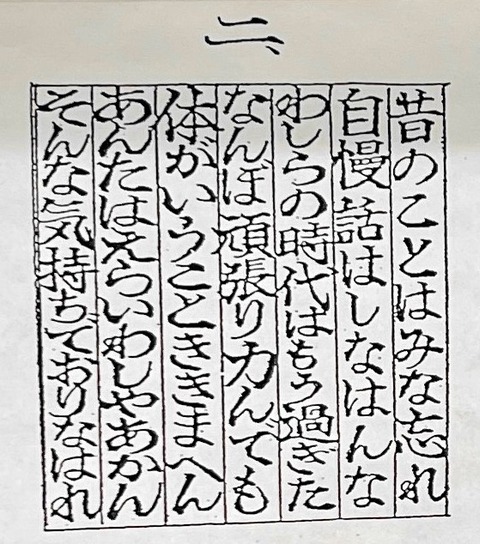 二、
昔のことはみな忘れ
自慢話はしなはんな
わしらの時代はもう過ぎた
なんぼ頑張り力んでも
体がいうことききまへん
あんたはえらいわしゃあかん
そんな気持ちでおりなはれ